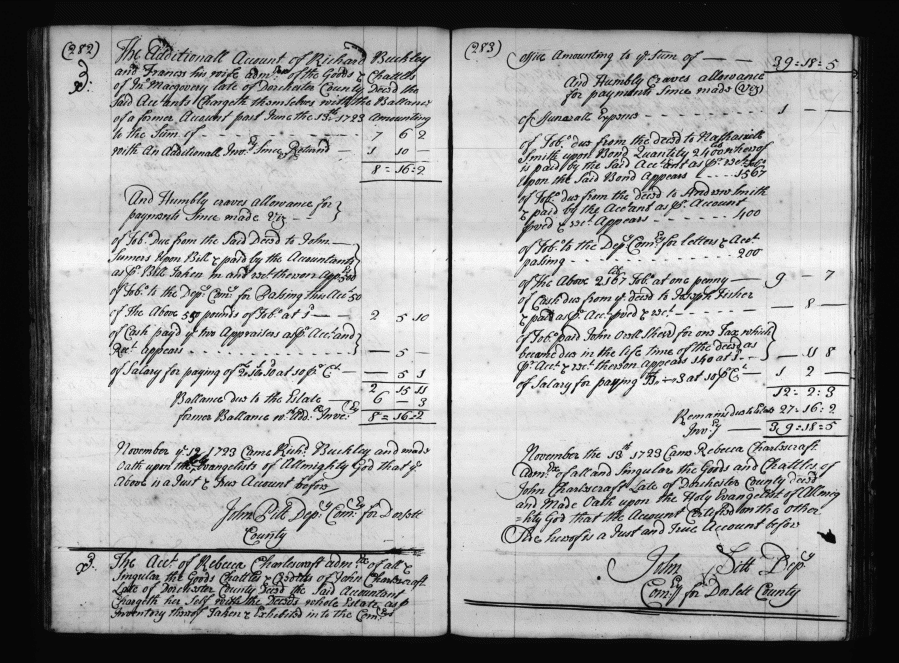 (282)
The Additionall Acount of Richard Buckley
and Francis his wife adm.rs of the Goods & Chattles
of Jn.o Macgovery late of Dorchester County Decd the
said Accants Chargeth themselves with the Ballance
of a former Account past June the 13th 1723 Amounting
to the Sum of - - - 7 6 2
with An Additionall Inv.y Since Retand - 1 10 -
8 = 16 = 2
And Humbly craves allowance for
payments Since made Viz
of Tob.o due from the Said Decd to John
Sumers Upon Bill & paid by the Accountants
as p.r Bill Taken in and rect thereon App 500
of Tob.o to the Dep.y Com.y for Passing this Acct 50
of the Above pounds of Tob.o at 1d - 2 5 10
of Cash payd y.e two Appraisers as p.r Acct and
Rect appears - - - 5 -
of Salary for paying of at 10 p.r Ct - - 5 1
2 15 11
Ballance due to the Estate - 6 - 3
former Ballance & Add. Inve.y 8 = 16 = 2
November y.e 13 1723 Came Rich.d Buckley and made
Oath upon the Holy Evangelists of Allmighty God that y.e
Above is a Just & True Account before
John Pitt Dep.y Com.y for Dorsett
County
The Acct of Rebeca Charlescraft adm.x of all &
Singular the Goods Chattles & Credits of John Charlescraft
Late of Dorchester County Decd the Said Accountant
Chargeth her Self with the Deceds whole Estate as p.r
Inventory thereof Taken & Exhibited into the Com.ys
(283)
office Amounting to y.e Sum of - - 39 = 18 = 5
And Humbly craves allowance
for payments Since made (Viz)
of Funerall Expence - - - 1 -
of Tob.o due from the decd to Nathaniell
Smith upon Bond Quantity 2400 whereof
is paid by the Said Acc.tant as p.r rect
Upon the Said Bond Appears - - 1567
of Tob.o due from the decd to Andrew Smith
& paid by the Accantant as p.r Account
proved & rect Appears - - - 400
of Tob.o to the Dep.y Com.y for letters & Acct
passing - - - 200
of the Above 2167 Tob.o at one penny - 9 - 7
of Cash due from y.e decd to Joseph Fisher
& paid as p.r Acc. proved & rect - - 8 -
of Tob.o paid John Sherd for one Tax which
became due in the Life Time of the decd as
p.r Acct & rect thereon appears 140 at 1d - - 11 8
of Salary for paying at 10 p.r Ct - 1 2 -
12 = 2 = 3
Remains due to Estate 27 = 16 = 2
Inv.y 39 = 18 = 5
November the 13th 1723 Came Rebeca Charlescraft
Adm.x of all and Singular the Goods and Chattles of
John Charlescraft Late of Dorchester County decd
and Made Oath upon the Holy Evangelist of Allmig
hty God that the Account Contained on the Other
Side hereof is a Just and True Account before
John Pitt Dep.y
Com.y for Dorsett County